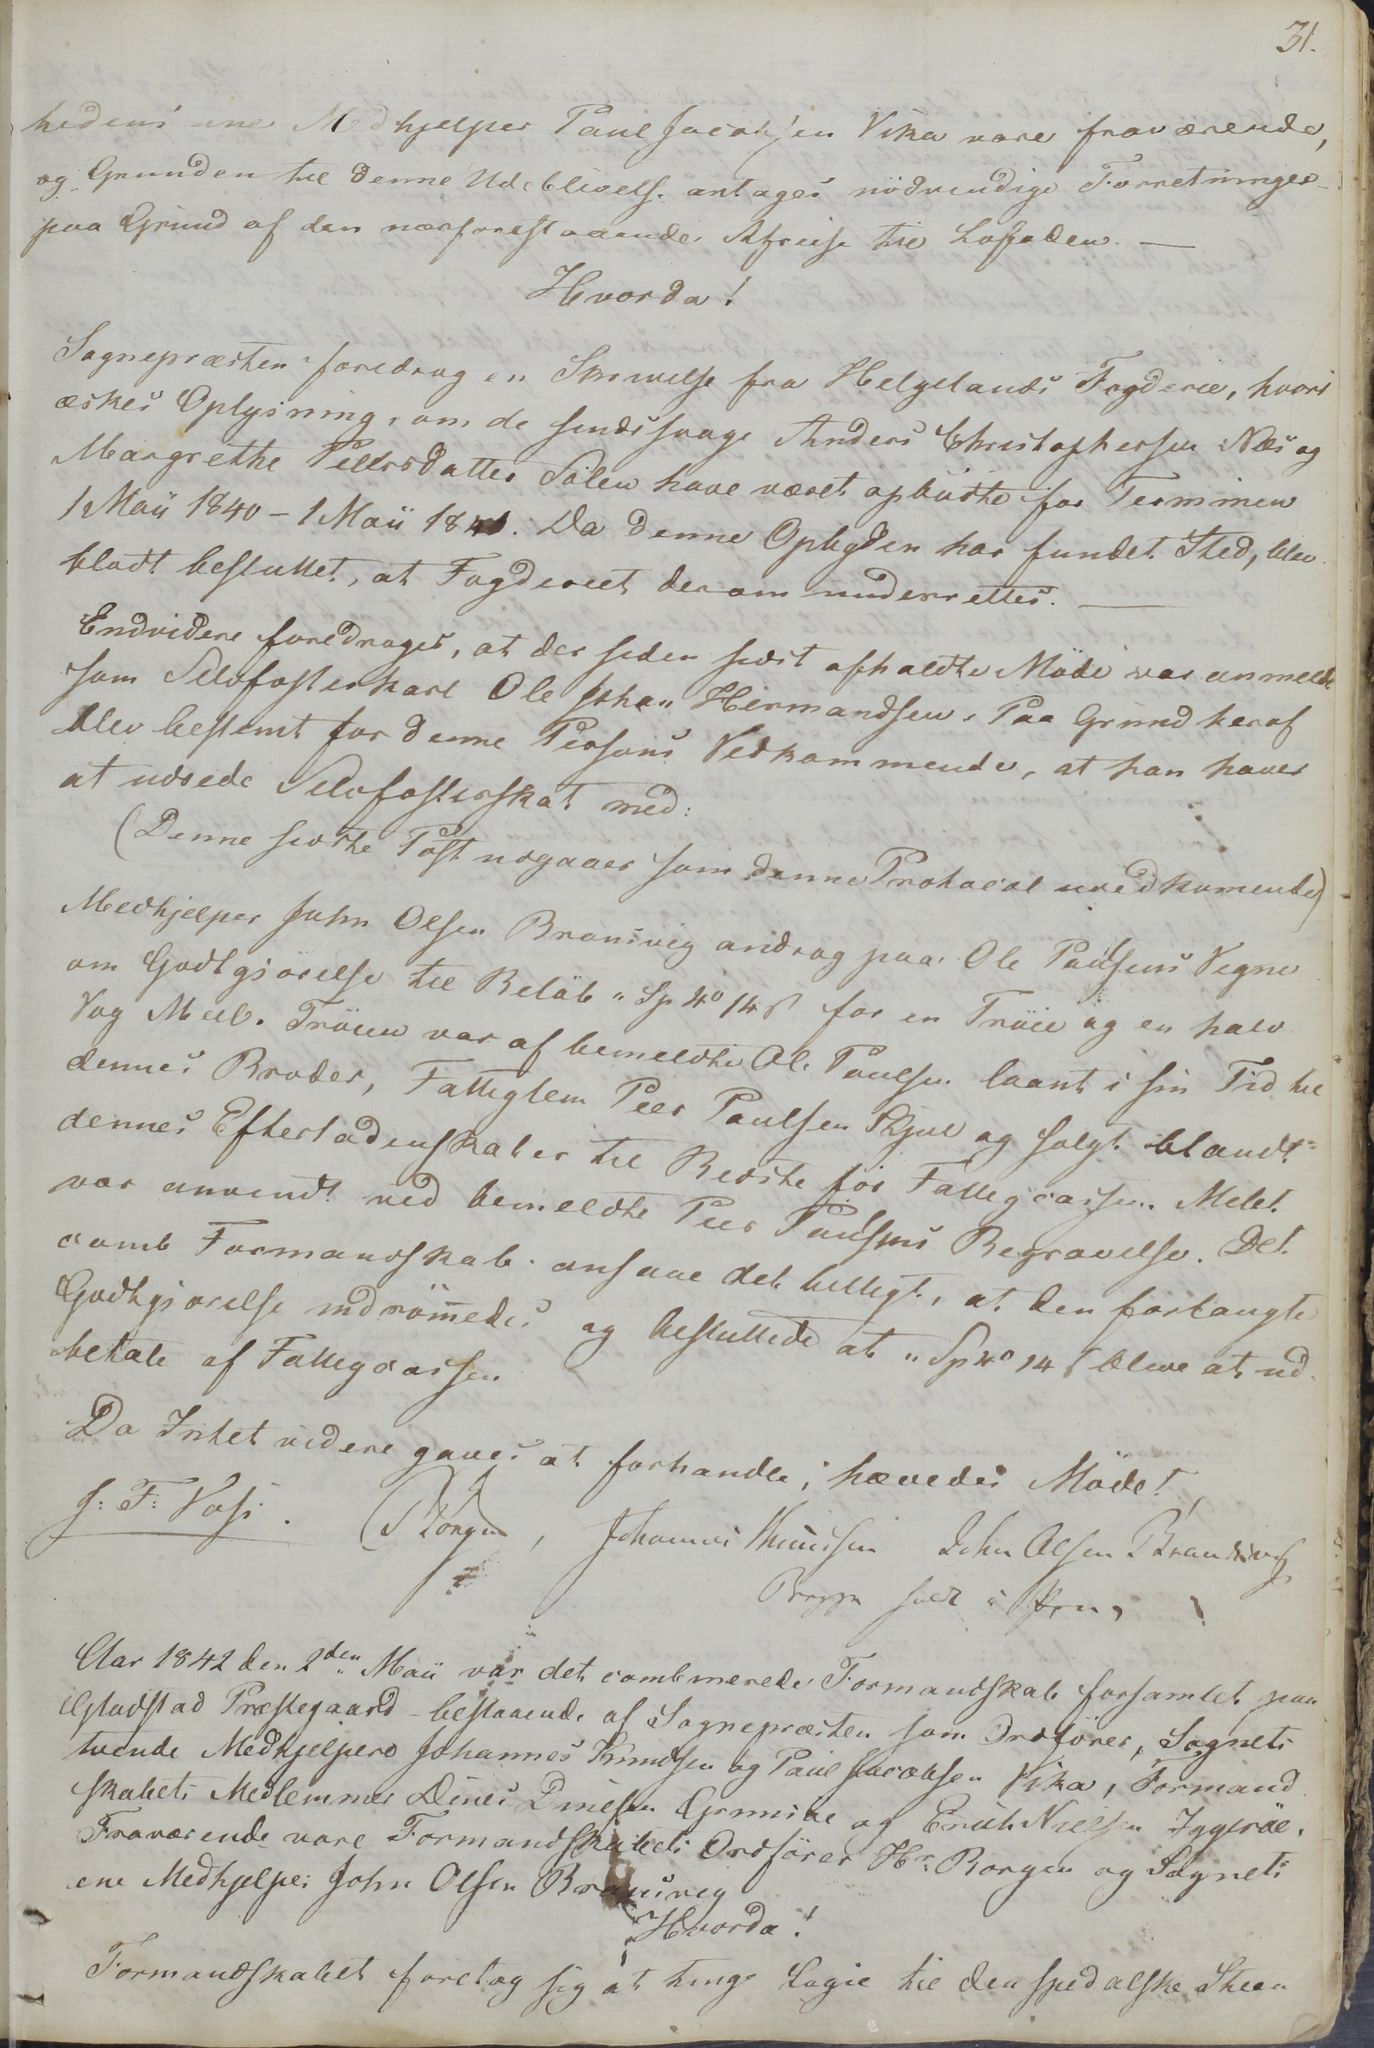 31.
hedens ene Medhjelper Paul Jacobsen Vika vare fraværende,
og Grunden til denne Udeblivelse antages nödvendige Forretninger
paa Grund af den nærforestaaende Afreise til Lofoden. —
Hvorda!
Sognepræsten foredrog en Skrivelse fra Helgelands Fogderie, hvori
æskes Oplysning, om de sindssvage Anders Christophersen Næs og
Margrethe Pettersdatter Solen have været opbudte for Terminen
1 Maii 1840 – 1 Maii 1841. Da denne Opbyden har fundet Sted, blev
blodt besluttet, at Fogderiet derom underrettes. —
Endvidere foredroges, at der siden sidst afholdte Möde var anmeldt
som Selvfosterkarl Ole Johan Hermandsen. Paa Grund heraf
blev bestemt for denne Persons Vedkommende, at han haver
at udrede Selvfosterskat med:
(Denne sidste Post udgaaer som denne Protocol uvedkommende)
Medhjelper John Olsen Bransvig androg paa Ole Paulsens Vegne
om Godtgjörelse til Belöb " Sp 4º 14 ß for en Tröie og en halv
Vog Meel. Tröien var af bemeldte Ole Paulsen laant i sin Tid til
dennes Broder, Fattiglem Peer Paulsen Skjul og solgt blandt
dennes Efterladenskaber til Bedste for Fattigcassen. Melet
var anvendt ved bemeldte Peer Paulsens Begravelse. Det
comb Formandskab ansaae det billigt, at den forlangte
Godtgjörelse indrömmedes og besluttede at " Sp 4º 14 ß bleve at ud-
betale af Fattigcassen
Da Intet videre gaves at forhandle, hævedes Mödet
J: F: Voss. Borgen, Johannes Knudsen John Olsen Brandsvig
i Pen,
Aar 1842 den 2den Maii var det combinerede Formandskab forsamlet paa
Gladstad Præstegaard – bestaaende af Sognepræsten som Ordförer, Sognets
tvende Medhjelpere Johannes Knudsen og Paul Jacobsen Vika, Formand
skabets Medlemmer Dines Dinesen Grimive og Erich Nielsen Iggeröe.
Fraværende vare Formandskabets Ordförer Hr. Borgen og Sognets
ene Medhjelper John Olsen Bransvig
Hvorda!
Formandskabet foretog sig at tinge Logie til den spedalske Steen